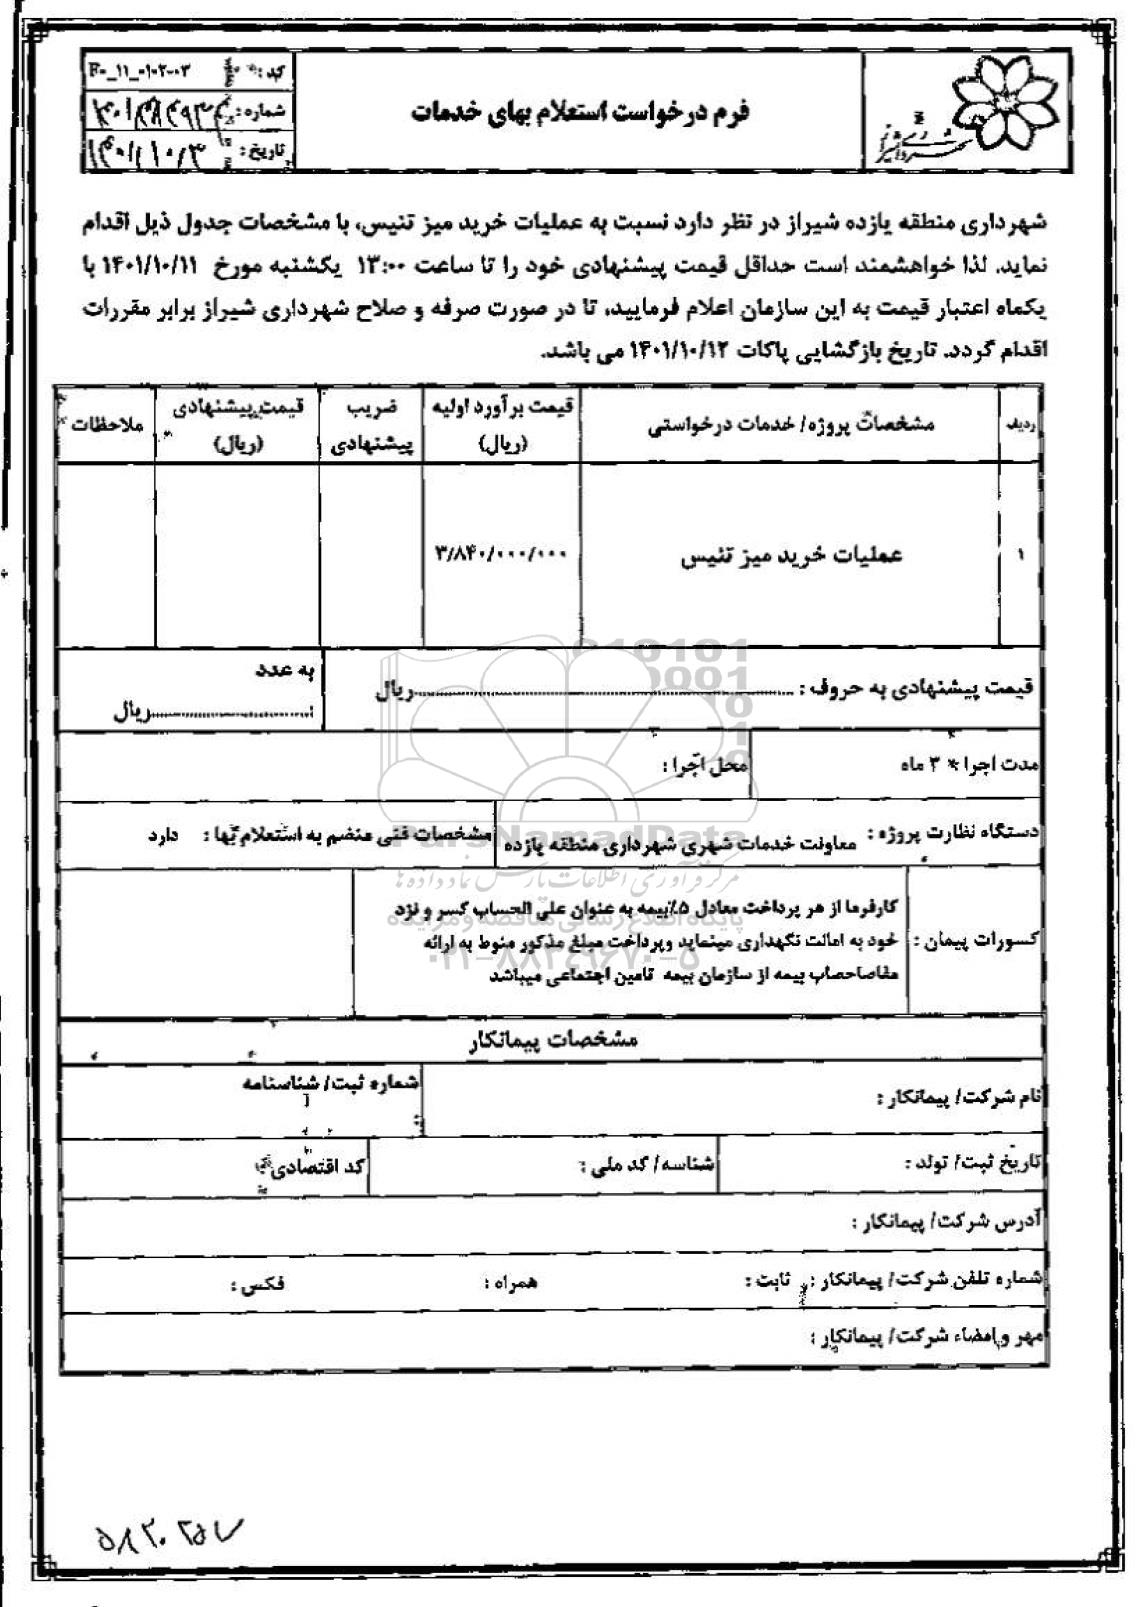 فرم درخواست استعلام بهای خدمات
کد :
F۰_۱۱_۰۱۰۲-۰۳
شماره:
تاریخ :
شهرداری منطقه یازده شیراز در نظر دارد نسبت به عملیات خرید میز تنیس، با مشخصات جدول ذیل اقدام
نماید. لذا خواهشمند است حداقل قیمت پیشنهادی خود را تا ساعت ۱۳:۰۰ یکشنبه مورخ ۱۴۰۱/۱۰/۱۱ با
یکماه اعتبار قیمت به این سازمان اعلام فرمایید، تا در صورت صرفه و صلاح شهرداری شیراز برابر مقررات
اقدام گردد. تاریخ بازگشایی پاکات ۱۴۰۱/۱۰/۱۲ می باشد.
ردیف
مشخصات پروژه/ خدمات درخواستی
قیمت برآورد اولیه
(ریال)
ضریب
پیشنهادی
قیمت پیشنهادی
(ریال)
ملاحظات
۱
عملیات خرید میز تنیس
۳/۸۴۰/۰۰۰/۰۰۰
قیمت پیشنهادی به حروف : ........................ریال
به عدد
:........................ریال
مدت اجرا : ۳ ماه
محل اجرا :
دستگاه نظارت پروژه : معاونت خدمات شهری شهرداری منطقه یازده
مشخصات فنی منضم به استعلام بها : دارد
کسورات پیمان :
کارفرما از هر پرداخت معادل ۵٪بیمه به عنوان علی الحساب کسر و نزد
خود به امانت نگهداری مینماید وپرداخت مبلغ مذکور منوط به ارائه
مفاصاحصاب بیمه از سازمان بیمه تامین اجتماعی میباشد
مشخصات پیمانکار
نام شرکت/ پیمانکار :
شماره ثبت/ شناسنامه
تاریخ ثبت/ تولد :
شناسه/ کد ملی :
کد اقتصادی
آدرس شرکت/ پیمانکار :
شماره تلفن شرکت/ پیمانکار : ثابت : همراه : فکس :
مهر و امضاء شرکت/ پیمانکار :
ParsNamadData
مرکز فرآوری اطلاعات پارس نماد داده ها
پایگاه اطلاع رسانی مناقصه و مزایده
۰۲۱-۸۸۳۴۹۶۷۰-۵